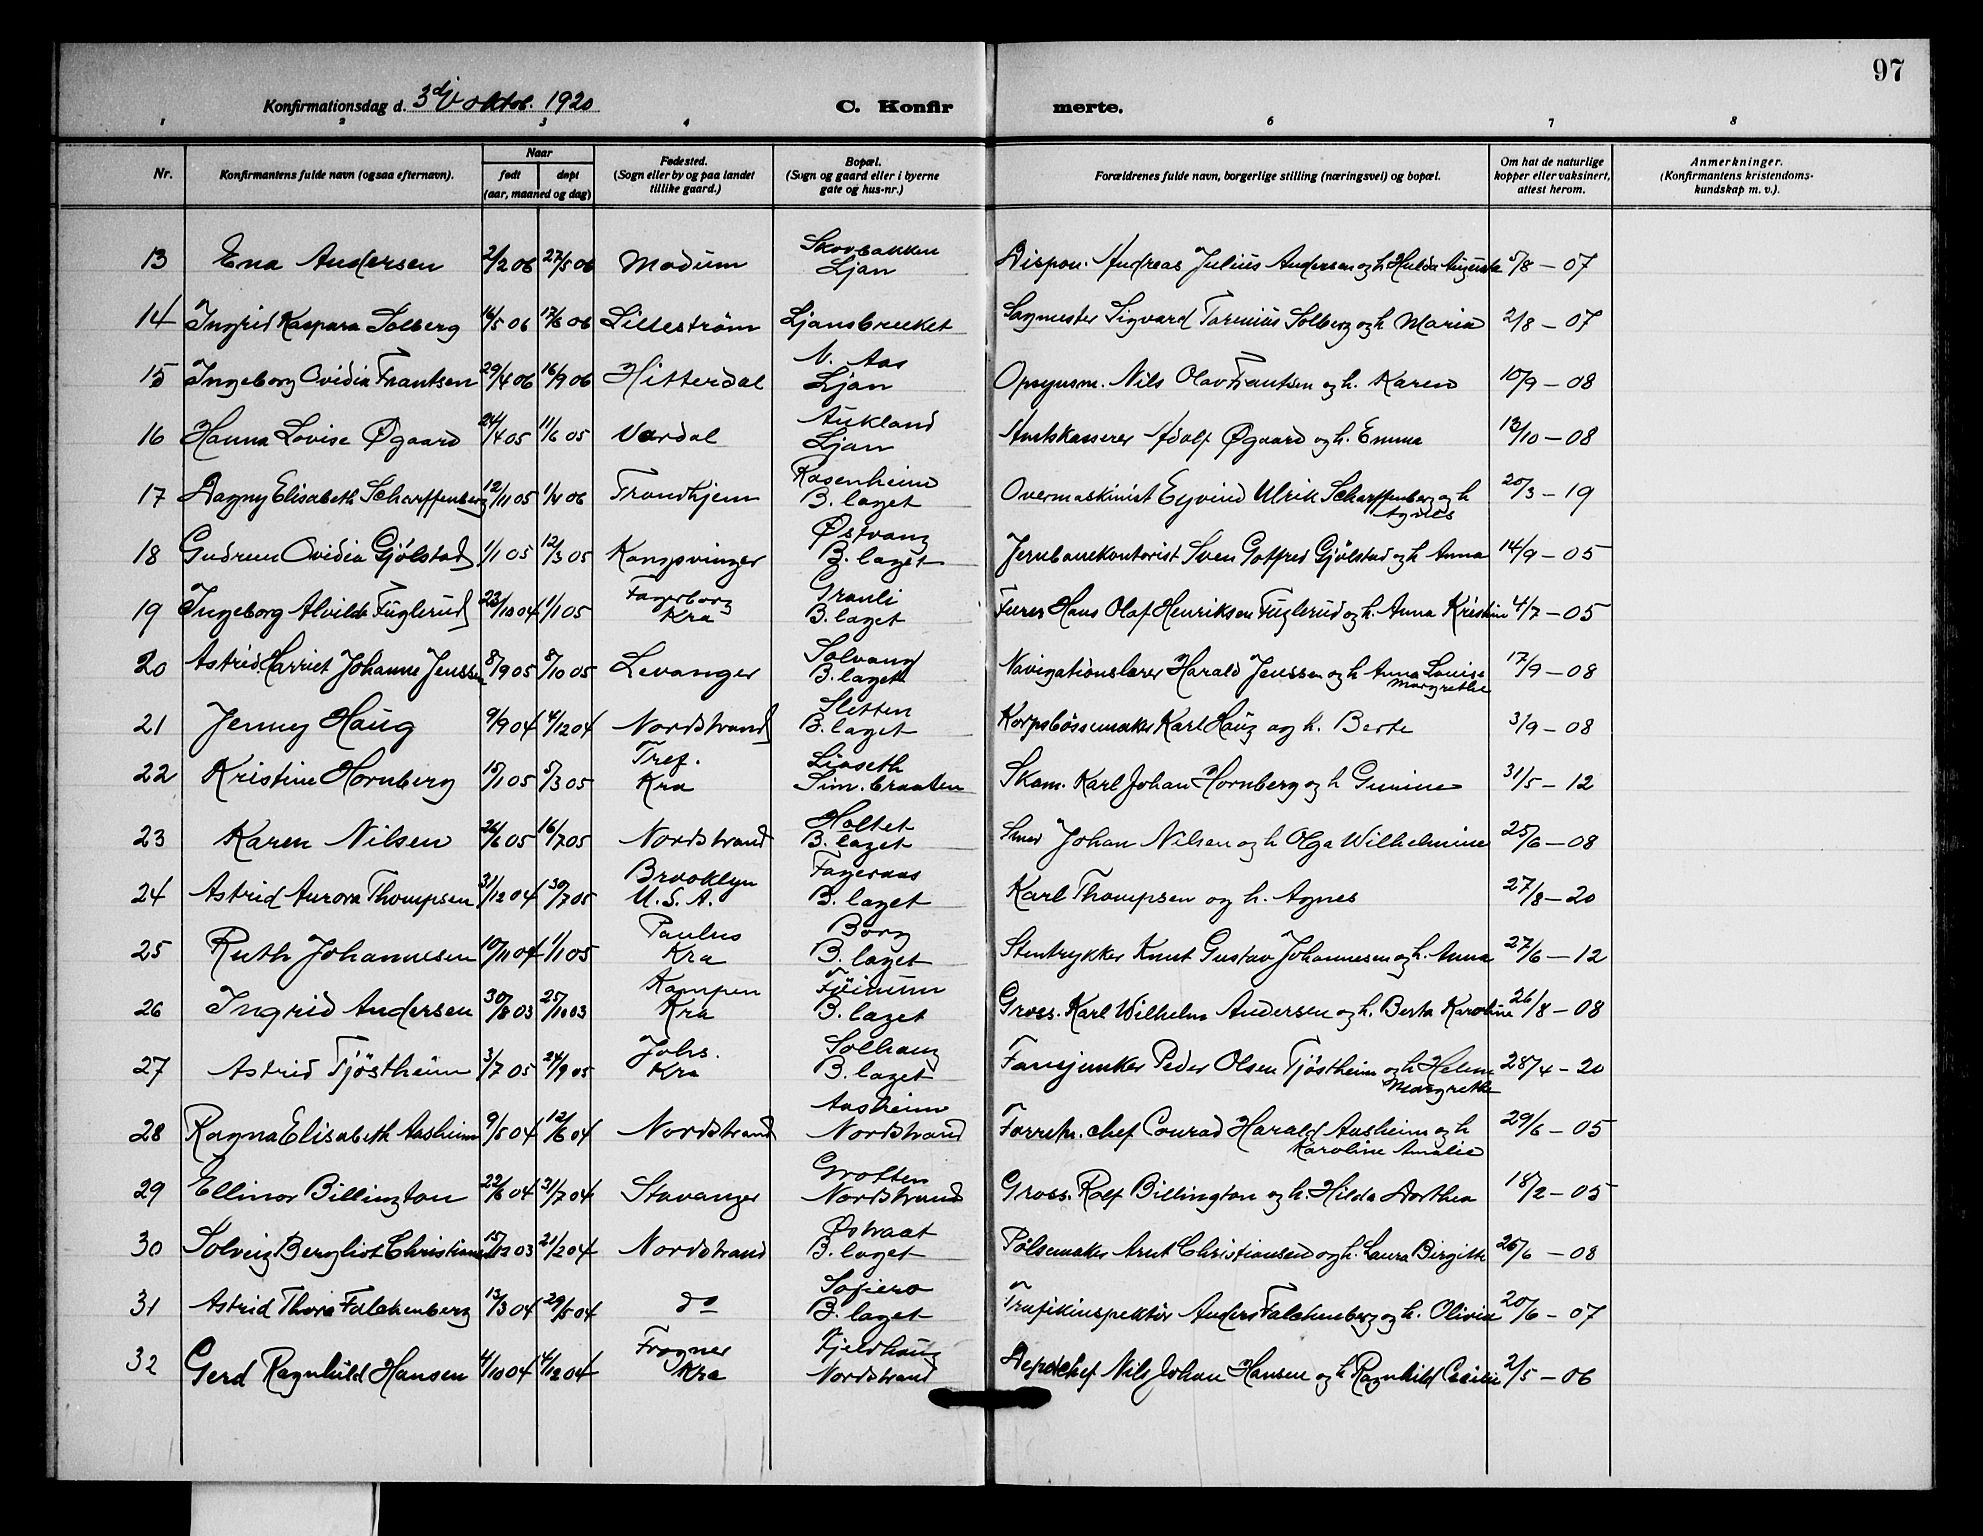 97
Konfirmationsdag d. 3dje oktob. 1920 C. Konfir merte.
1 2 3 4 6 7 8
Nr. Konfirmantens fulde navn (ogsaa efternavn). Naar født døpt (aar, maaned og dag) Fødested. (Sogn eller by og paa landet tillike gaard.) Bopæl. (Sogn og gaard eller i byerne gate og hus-nr.) Forældrenes fulde navn, borgerlige stilling (næringsvei) og bopæl. Om hat de naturlige kopper eller vaksinert, attest herom. Anmerkninger. (Konfirmantens kristendomskundskap m. v.).
13 Ena Andersen 2/2 06 27/5 06 Modum Skovbakken Ljan Dispon. Andreas Julius Andersen og h. Hulda Auguste 5/8 – 07
14 Ingrid Kaspara Solberg 16/5 06 17/6 06 Lilleström Ljansbruket Sagmester Sigvard Tarenius Solberg og h. Maria 2/8 – 07
15 Ingeborg Ovidia Frantsen 29/4 06 16/9 06 Hitterdal N. Aas Ljan Opsynsm. Nils Olav Frantsen og h. Karen 10/9 – 08
16 Hanna Lovise Øgaard 24/4 05 11/6 05 Vardal Aukland Ljan Amtskasserer Adolf Øgaard og h. Emma 13/10 – 08
17 Dagny Elisabeth Scharffenberg 12/11 05 1/4 06 Trondhjem Rosenheim B. laget Overmaskinist Eyvind Ulrik Scharffenberg og h Agnes 20/3 – 19
18 Gudrun Ovidia Gjölstad 1/1 05 12/3 05 Kongsvinger Østvang B. laget Jernbanekontorist Sven Gotfred Gjölstad og h. Anna 14/9 – 05
19 Ingeborg Alvilde Fuglerud 23/10 04 1/1 05 Fagerborg Kra Granli B. laget Furer Hans Olaf Henriksen Fuglerud og h. Anna Kristine 4/7 – 05
20 Astrid Harriet Johanne Jenssen 8/9 05 8/10 05 Levanger Solvang B. laget Navigationslærer Harald Jenssen og h Anna Louise Margrethe 17/9 – 08
21 Jenny Haug 9/9 04 4/12 04 Nordstrand Sletten B. laget Korpsbössemaker Karl Haug og h. Berte 3/9 – 08
22 Kristine Hornberg 15/1 05 5/3 05 Tref. Kra Liaseth Sim. braaten Skom. Karl Johan Hornberg og h Gunine 31/5 – 12
23 Karen Nilsen 26/6 05 16/7 05 Nordstrand Holtet B. laget Smed Johan Nilsen og h Olga Wilhelmine 25/6 – 08
24 Astrid Aurora Thompsen 31/12 04 30/7 05 Brooklyn U. S. A. Fageraas B. laget Karl Thompsen og h. Agnes 27/8 – 20
25 Ruth Johannesen 10/11 04 1/1 05 Paulus Kra Borg B. laget Stentrykker Knut Gustav Johannesen og h. Anna 27/6 – 12
26 Ingrid Andersen 30/8 03 25/10 03 Kampen Kra B. laget Gross. Karl Wilhelm Andersen og h. Berta Karoline 26/8 – 08
27 Astrid Tjöstheim 3/7 05 24/9 05 Johs. Kra Solhaug B. laget Fanejunker Peder Olsen Tjöstheim og h Helene Margrethe 28/4 – 20
28 Ragna Elisabeth Aasheim 9/5 04 12/6 04 Nordstrand Aasheim Nordstrand Forretn. chef Conrad Harald Aasheim og h Karoline Amalie 29/6 – 05
29 Ellinor Billington 22/6 04 31/7 04 Stavanger Grotten Nordstrand Gross. Rolf Billington og h. Hilda Dorthea 18/2 – 05
30 Solveig Bergliot Christiansen 15/12 03 21/2 04 Nordstrand Østraat B. laget Pölsemaker Arnt Christiansen og h. Laura Birgitte 26/6 – 08
31 Astrid Thora Falchenberg 13/3 04 29/5 04 do Sofiero B. laget Trafikinspektör Anders Falchenberg og h. Olivia 20/6 – 07
32 Gerd Ragnhild Hansen 4/10 04 4/12 04 Frogner Kra Fjeldhaug Nordstrand Depotchef Nils Johan Hansen og h Ragnhild Cecilie 2/5 – 06